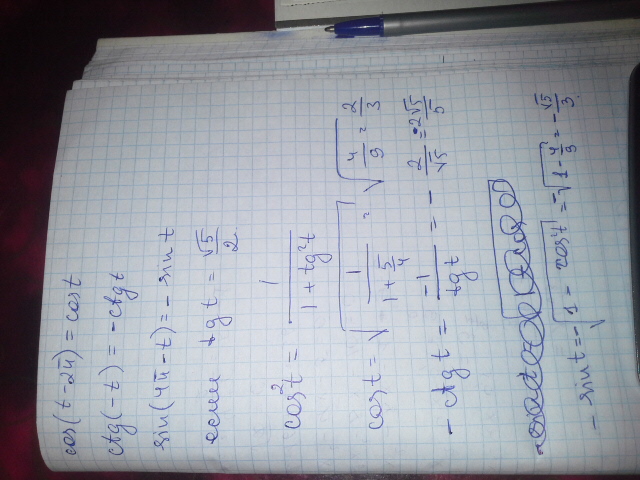 cos(t-2π) = cost
ctg(-t) = -ctgt
sin(4π-t) = -sin t
если tg t = √5/2
cos²t = 1/(1+tg²t)
cost = √(1/(1+5/4)) = √(4/9) = 2/3
-ctg t = -1/tgt = -2/√5 = 2√5/5
-sint = -√(1-cos²t) = -√(1-4/9) = -√5/3